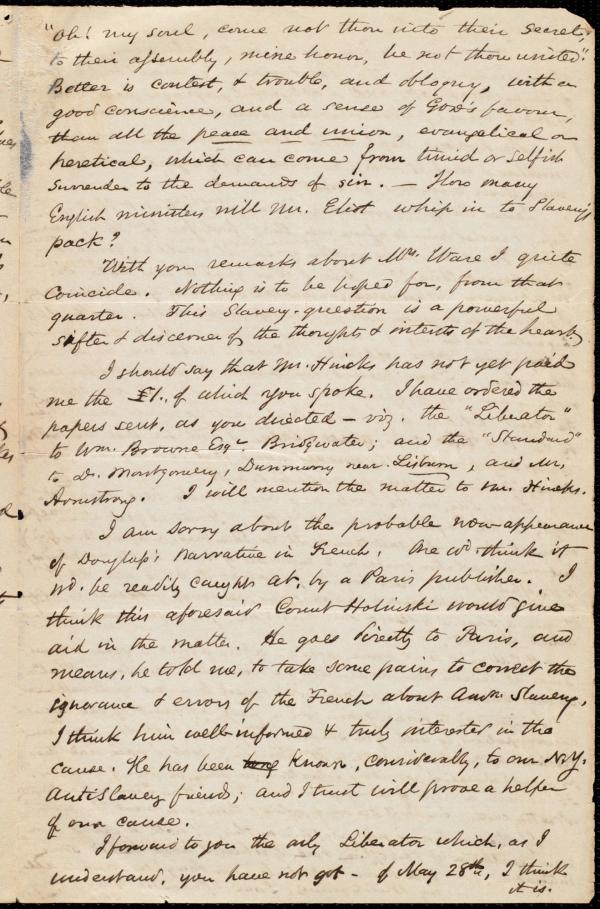 "Oh! my soul, come not thou into their secret,
to their assembly, mine honor, be not thou united."
Better is contest, & trouble, and obloquy, with a
good conscience, and a sense of God's favour,
than all the peace and union, evangelical or
heretical, which can come from timid or selfish
surrender to the demands of sin. — How many
English ministers will Mr. Eliot whip in to Slavery's
pack?
With your remarks about Mrs. Ware I quite
coincide. Nothing is to be hoped for, from that
quarter. This Slavery-question is a powerful
sifter & discerner of the thoughts & intents of the heart.
I should say that Mr. Hincks has not yet paid
me the £1., of which you spoke. I have ordered the
papers sent, as you directed - viz. the "Liberator"
to Wm. Browne Esqr. Bridgwater; and the "Standard"
to Dr. Montgomery, Dunmurry near Lisburn, and Mr.
Armstrong. I will mention the matter to Mr. Hincks.
I am sorry about the probable non-appearance
of Douglass's Narrative in French. One wd. think it
wd. be readily caught at, by a Paris publisher. I
think this aforesaid Count Holinski would give
aid in the matter. He goes directly to Paris, and
means, he told me, to take some pains to correct the
ignorance & errors of the French about Amn. Slavery.
I think him well-informed & truly interested in the
cause. He has been long known, considerably, to our N.Y.
AntiSlavery friends; and I trust will prove a helper
of our cause.
I forward to you the only Liberator which, as I
understand, you have not got - of May 28th, I think
it is.